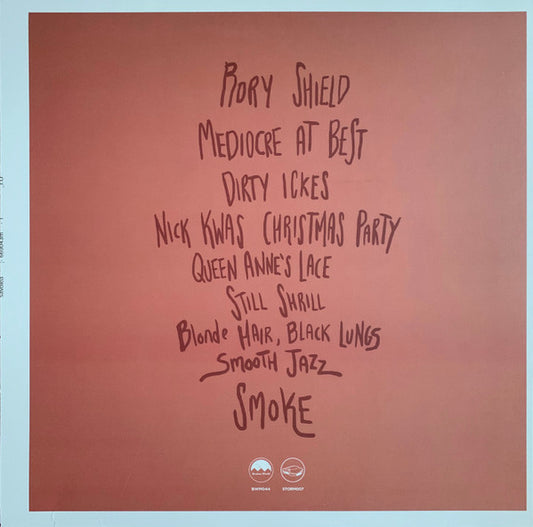 RORY SHIELD
MEDIOCRE AT BEST
DIRTY ICKES
NICK KWAS CHRISTMAS PARTY
QUEEN ANNE'S LACE
STILL SHRILL
Blonde HAIR, BLACK LUNGS
SMOOTH JAZZ
SMOKE